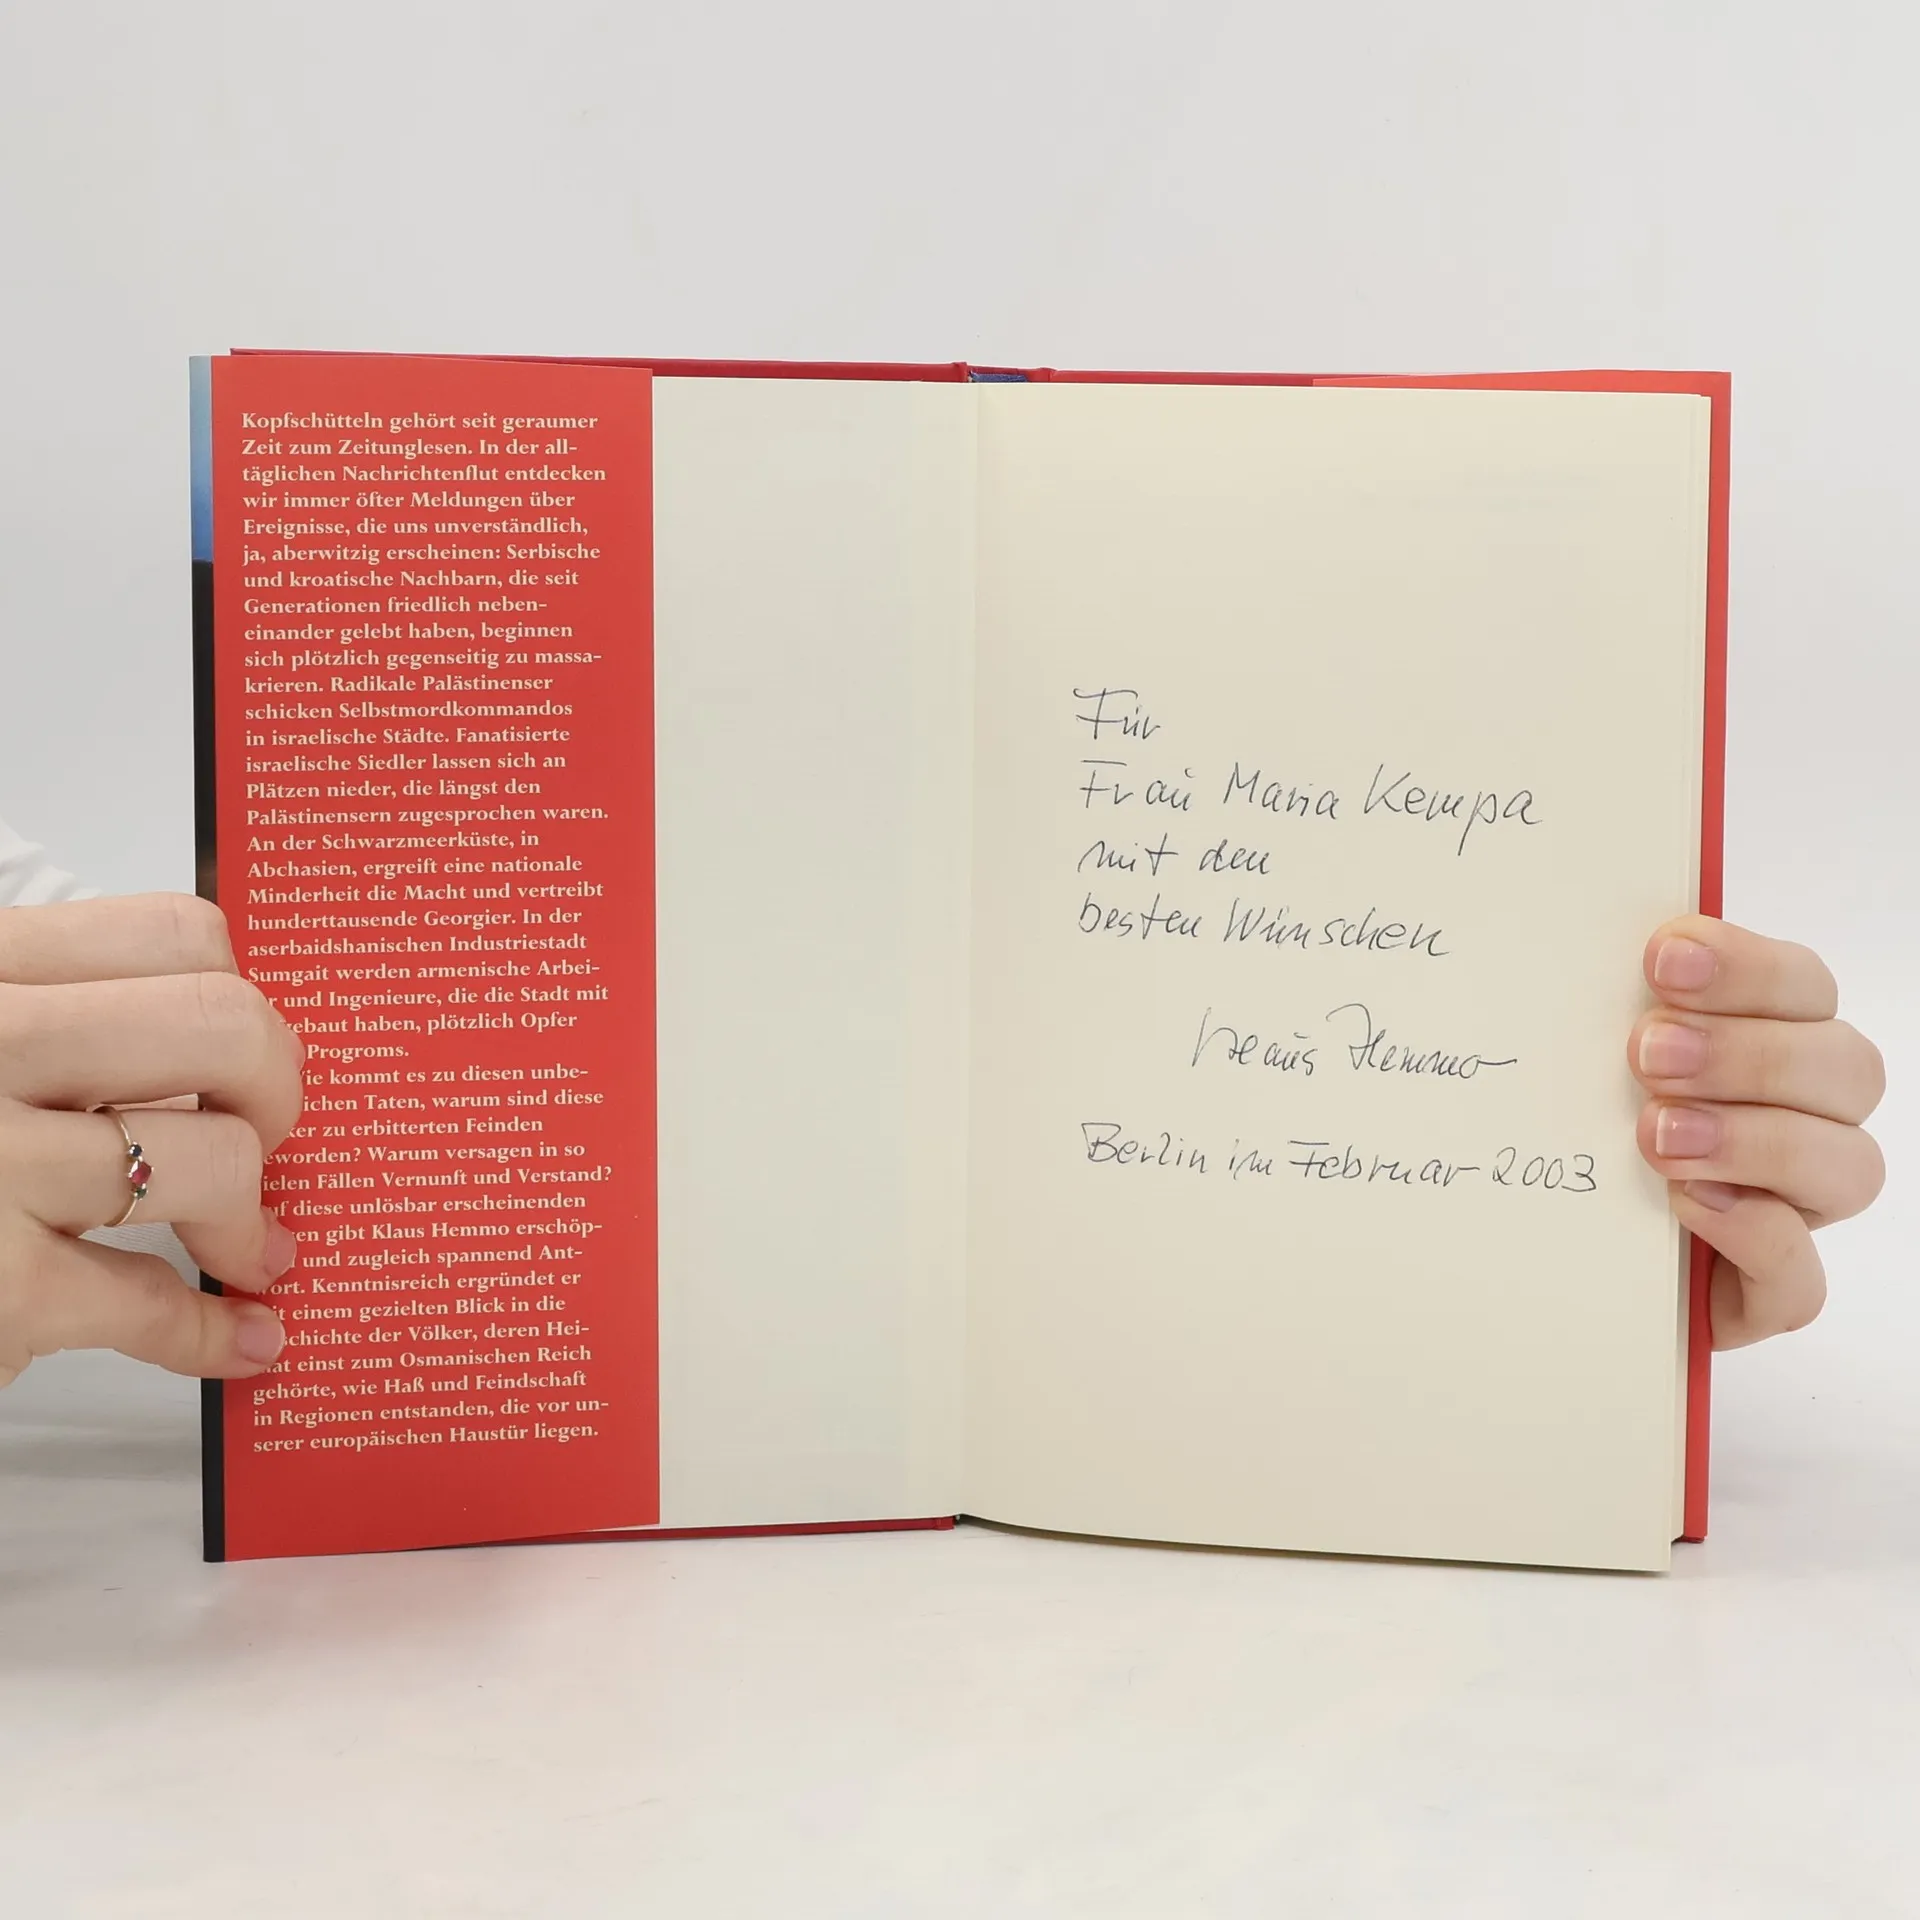 Kopfschütteln gehört seit geraumer
Zeit zum Zeitunglesen. In der all-
täglichen Nachrichtenflut entdecken
wir immer öfter Meldungen über
Ereignisse, die uns unverständlich,
ja, aberwitzig erscheinen: Serbische
und kroatische Nachbarn, die seit
Generationen friedlich neben-
einander gelebt haben, beginnen
sich plötzlich gegenseitig zu massa-
krieren. Radikale Palästinenser
schicken Selbstmordkommandos
in israelische Städte. Fanatisierte
israelische Siedler lassen sich an
Plätzen nieder, die längst den
Palästinensern zugesprochen waren.
An der Schwarzmeerküste, in
Abchasien, ergreift eine nationale
Minderheit die Macht und vertreibt
hunderttausende Georgier. In der
aserbaidshanischen Industriestadt
Sumgait werden armenische Arbei-
r und Ingenieure, die die Stadt mit
ebaut haben, plötzlich Opfer
Progroms.
ie kommt es zu diesen unbe-
ichen Taten, warum sind diese
ker zu erbitterten Feinden
eworden? Warum versagen in so
ielen Fällen Vernunft und Verstand?
uf diese unlösbar erscheinenden
en gibt Klaus Hemmo erschöp-
und zugleich spannend Ant-
wort. Kenntnisreich ergründet er
it einem gezielten Blick in die
schichte der Völker, deren Hei-
mat einst zum Osmanischen Reich
gehörte, wie Haß und Feindschaft
in Regionen entstanden, die vor un-
serer europäischen Haustür liegen.
Für
Frau Maria Kempa
mit den
besten Wünschen
Klaus Hemmo
Berlin im Februar 2003